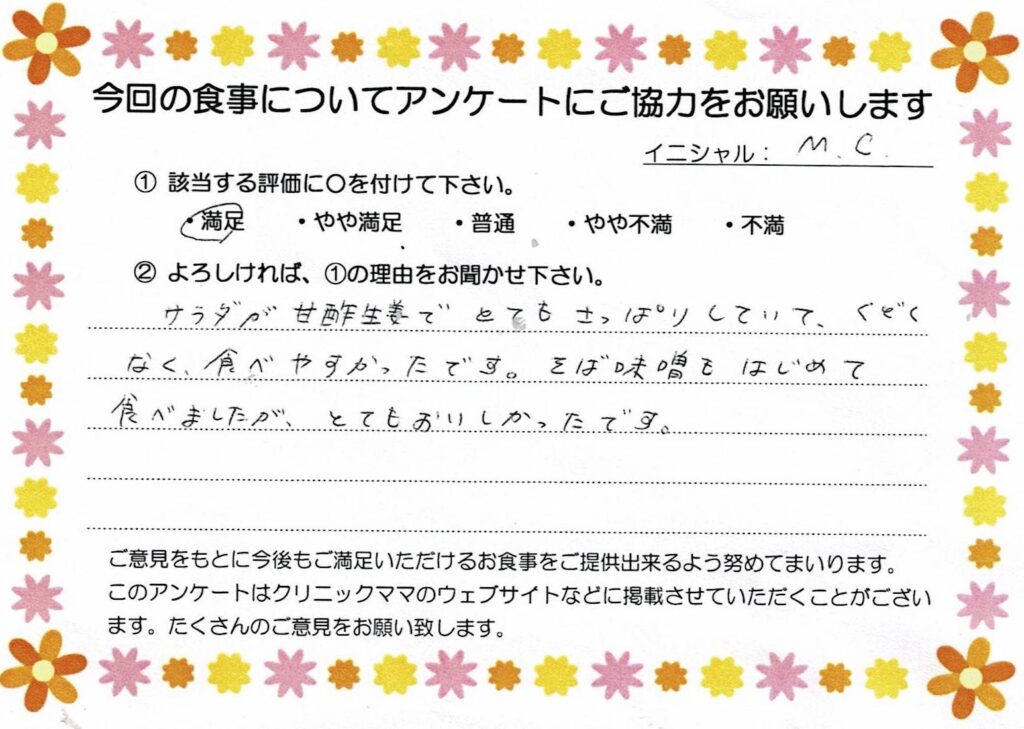 今回の食事についてアンケートにご協力をお願いします
イニシャル： M.C.
① 該当する評価に〇を付けて下さい。
・満足 ・やや満足 ・普通 ・やや不満 ・不満
② よろしければ、①の理由をお聞かせ下さい。
サラダが甘酢生姜でとてもさっぱりしていて、くどく
なく、食べやすかったです。そば味噌もはじめて
食べましたが、とてもおいしかったです。
ご意見をもとに今後もご満足いただけるお食事をご提供出来るよう努めてまいります。
このアンケートはクリニックママのウェブサイトなどに掲載させていただくことがござい
ます。たくさんのご意見をお願い致します。